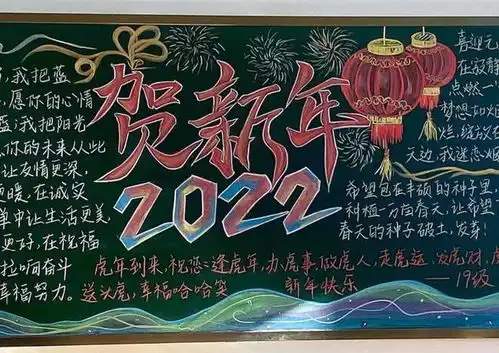 贺新年
2022
我把蓝
愿你的心情
蓝；我把阳光
你的未来从此
让友情更深，
暖，在诚实
单中让生活更美
更好，在祝福
拉响奋斗
幸福努力。
在寂静
点燃一
梦想如
烂，绽放
天边，我迷恋烟
希望包在丰硕的种子里
种植一亩春天，让希望
春天的种子破土，发芽！
虎年到来，祝您：逢虎年，办虎事，做虎人，走虎运，发虎财，
送头虎，幸福哈哈笑 新年快乐 ——19级